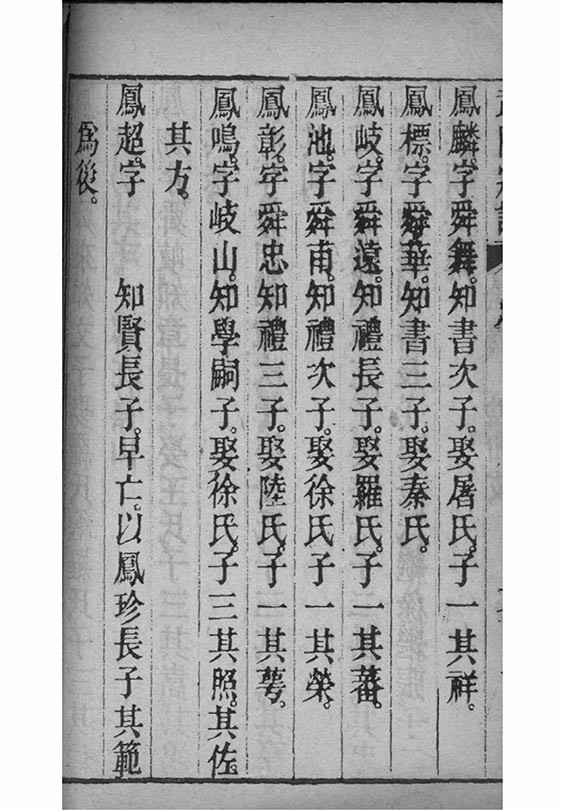 鳳麟。字舜舞。知書次子。娶屠氏。子一其祥。
鳳標。字舜華。知書三子。娶秦氏。
鳳岐。字舜遠。知禮長子。娶羅氏。子一其蕃。
鳳池。字舜甫。知禮次子。娶徐氏子一其榮。
鳳彰。字舜忠知禮三子。娶陸氏。子一其蕚。
鳳鳴。字岐山。知學嗣子。娶徐氏。子三其照。其佐。
其方。
鳳超。字　知賢長子。早亡。以鳳珍長子其範
爲後。